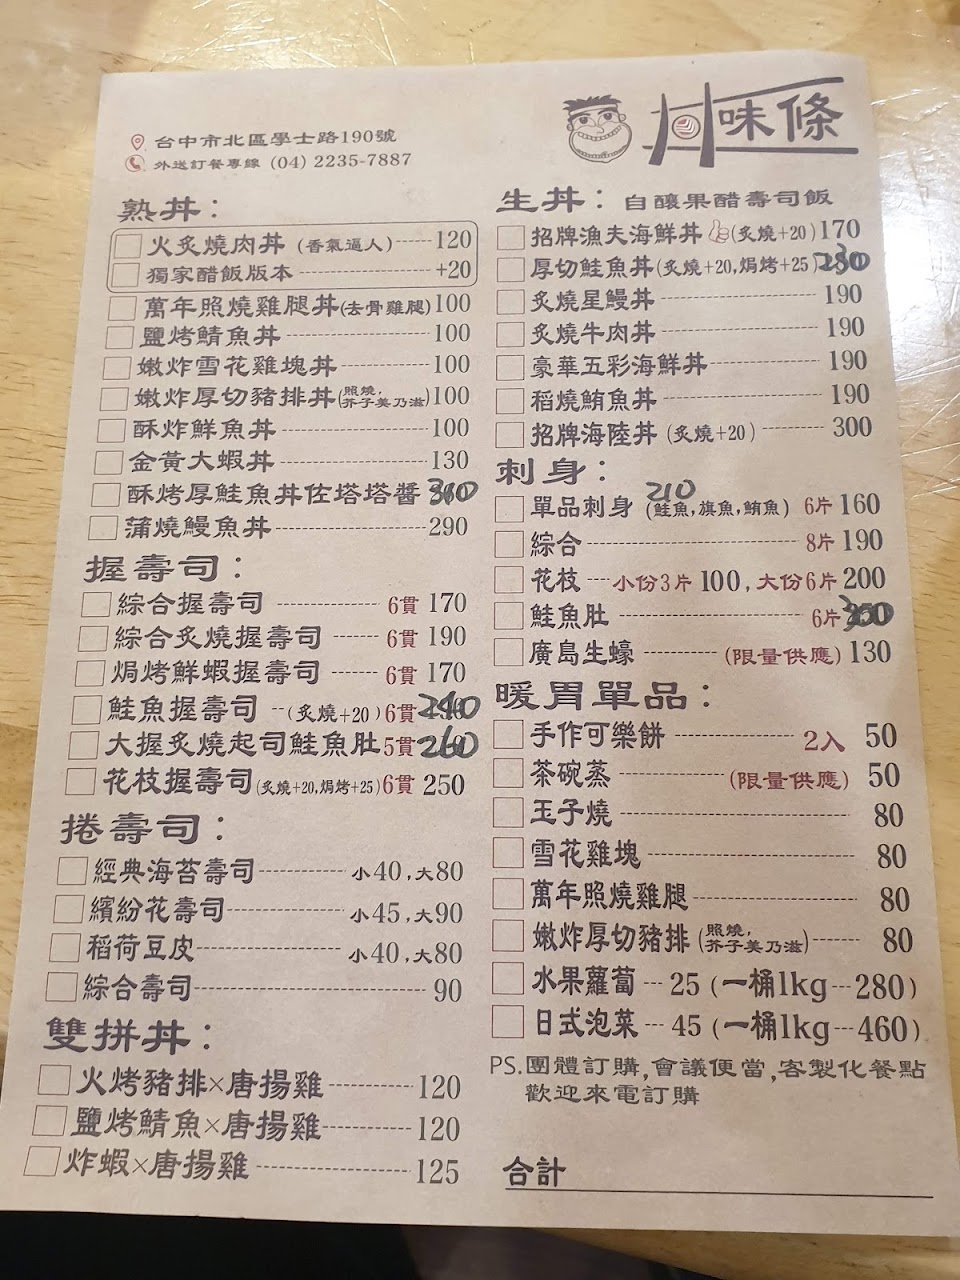 丼味條
台中市北區學士路190號
外送訂餐專線 (04) 2235-7887
熟丼：
火炙燒肉丼 (香氣逼人)------120
獨家醋飯版本--------------------+20
萬年照燒雞腿丼(去骨雞腿)100
鹽烤鯖魚丼--------------------100
嫩炸雪花雞塊丼---------------100
嫩炸厚切豬排丼(照燒,芥子美乃滋)100
酥炸鮮魚丼--------------------100
金黃大蝦丼--------------------130
酥烤厚鮭魚丼佐塔塔醬
蒲燒鰻魚丼--------------------290
握壽司：
綜合握壽司 -------------- 6貫 170
綜合炙燒握壽司 ------- 6貫 190
焗烤鮮蝦握壽司 ------- 6貫 170
鮭魚握壽司 --(炙燒+20)6貫 240
大握炙燒起司鮭魚肚5貫 260
花枝握壽司(炙燒+20,焗烤+25)6貫 250
捲壽司：
經典海苔壽司------------小40,大80
繽紛花壽司----------------小45,大90
稻荷豆皮--------------------小40,大80
綜合壽司------------------------------90
雙拼丼：
火烤豬排×唐揚雞-------------120
鹽烤鯖魚×唐揚雞-------------120
炸蝦×唐揚雞--------------------125
生丼：自釀果醋壽司飯
招牌漁夫海鮮丼(炙燒+20)170
厚切鮭魚丼(炙燒+20,焗烤+25)
炙燒星鰻丼--------------------190
炙燒牛肉丼--------------------190
豪華五彩海鮮丼--------------190
稻燒鮪魚丼--------------------190
招牌海陸丼 (炙燒+20)--------300
刺身：
210
單品刺身 (鮭魚,旗魚,鮪魚) 6片 160
綜合------------------------------8片 190
花枝----小份3片 100,大份6片 200
鮭魚肚--------------------------6片 300
廣島生蠔-----------(限量供應)130
暖胃單品：
手作可樂餅----------------2入 50
茶碗蒸--------------(限量供應) 50
玉子燒-------------------------------80
雪花雞塊----------------------------80
萬年照燒雞腿----------------------80
嫩炸厚切豬排(照燒,芥子美乃滋)------80
水果蘿蔔---25(一桶1kg---280)
日式泡菜---45(一桶1kg---460)
PS.團體訂購,會議便當,客製化餐點
歡迎來電訂購
合計